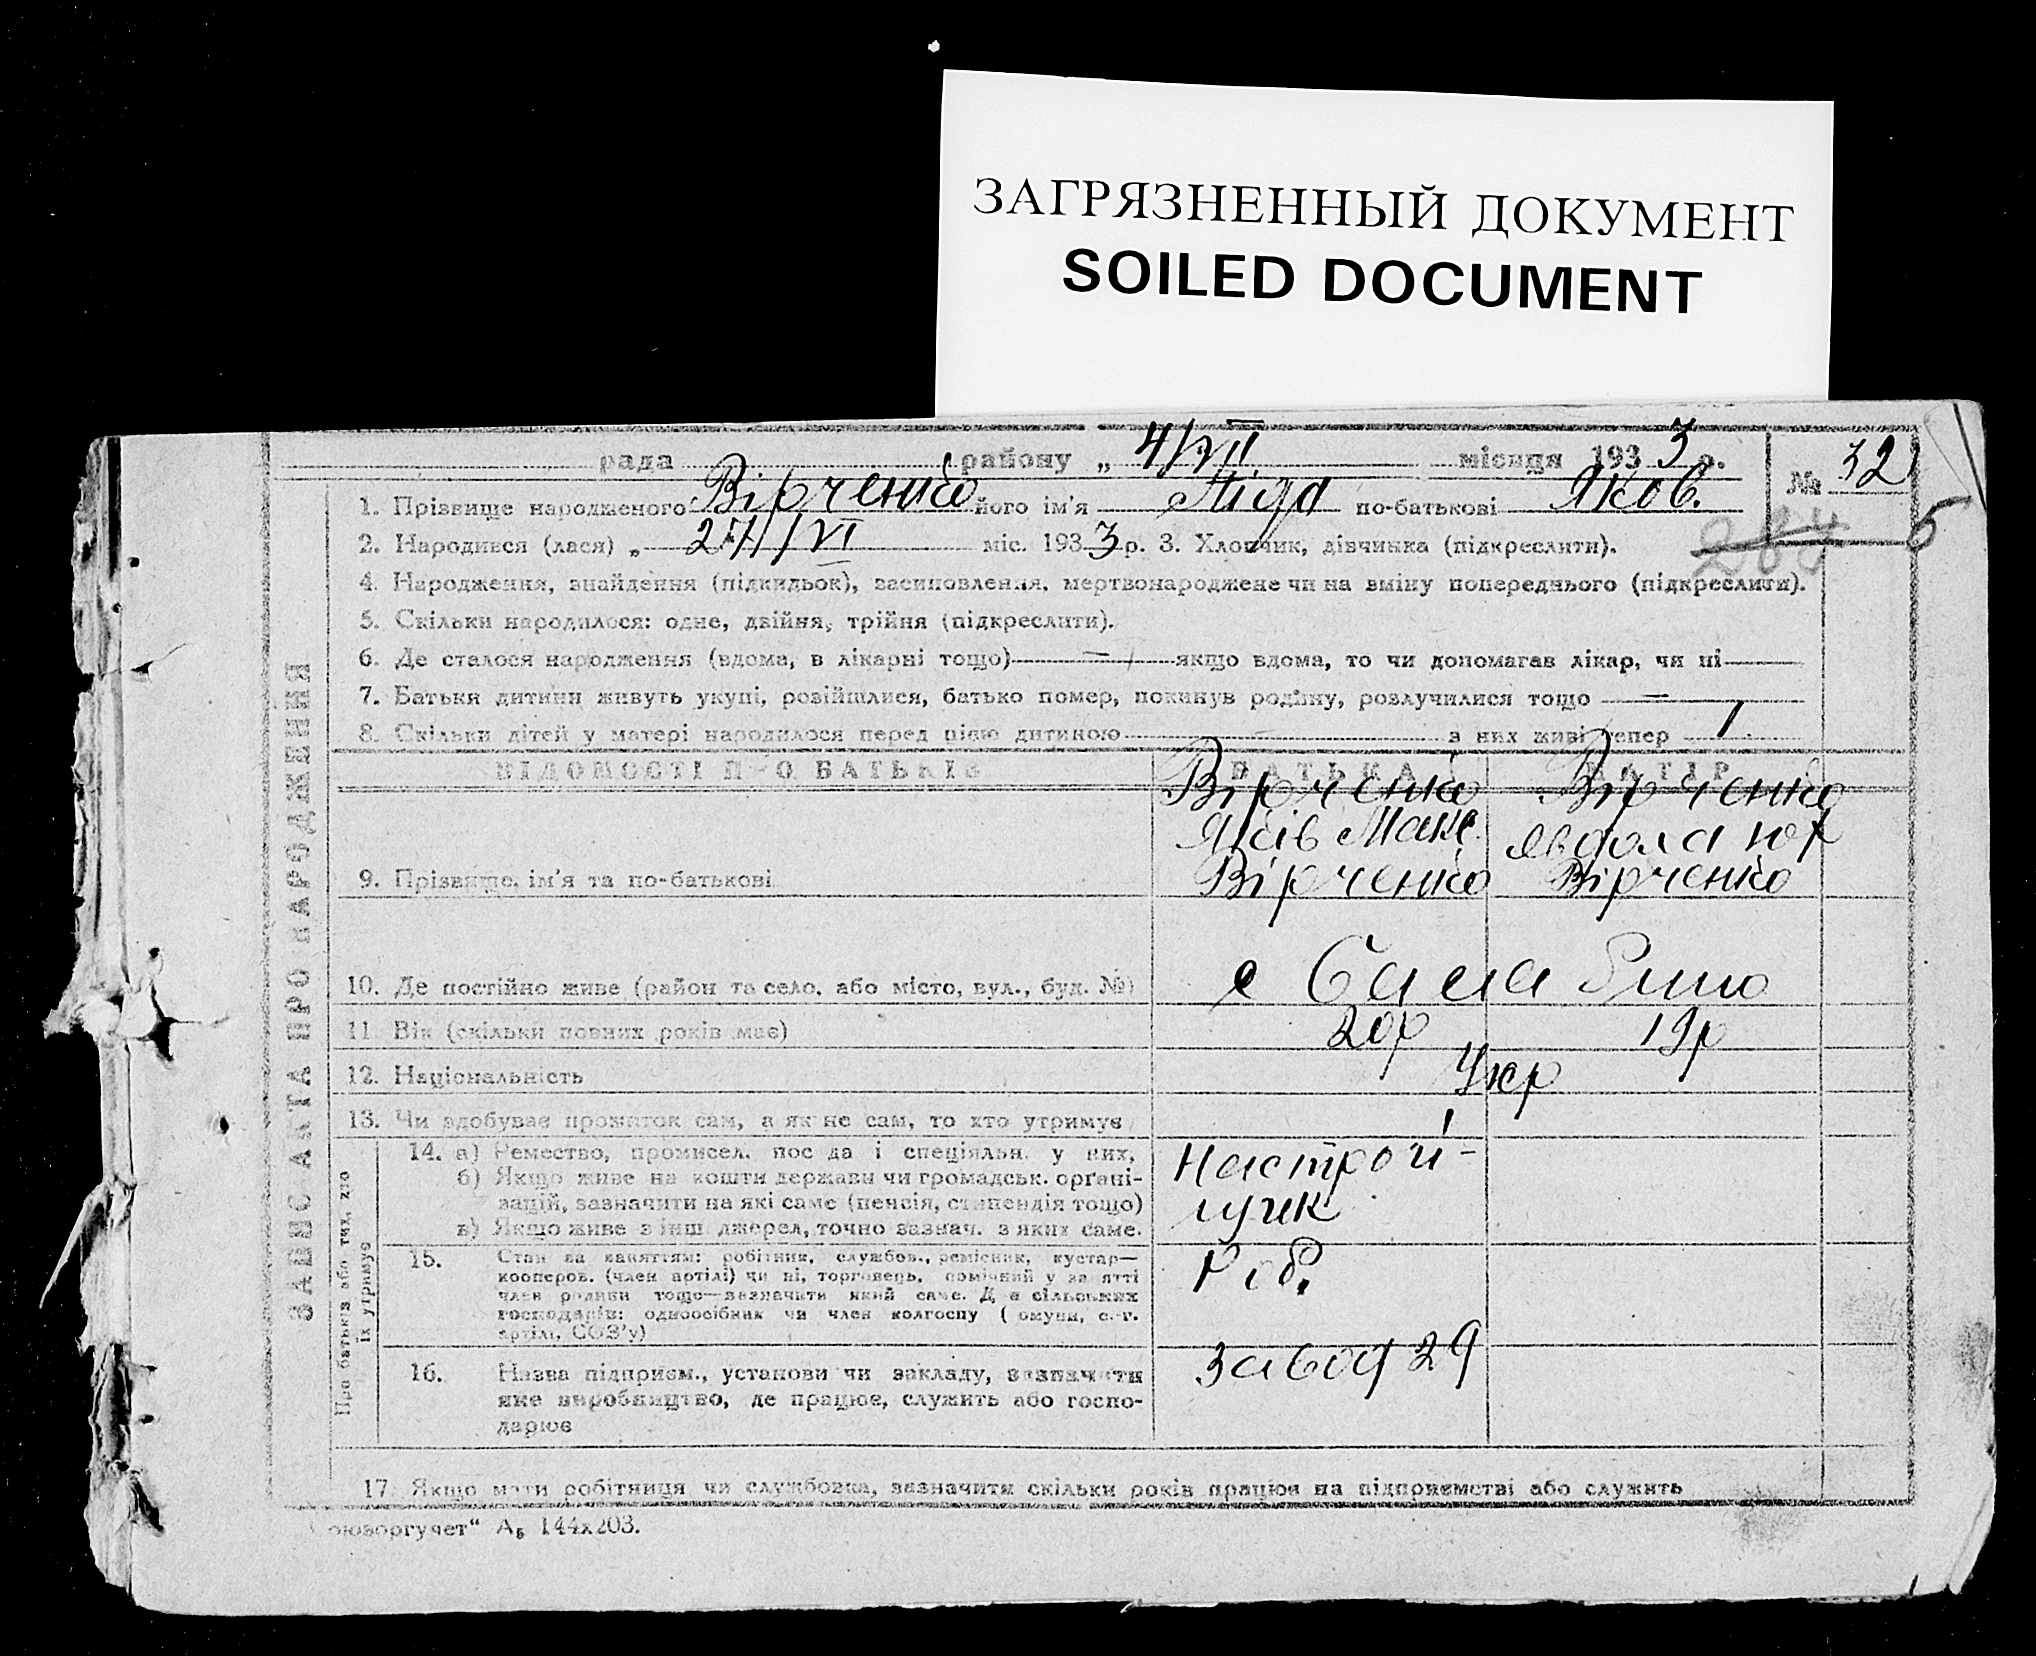 ЗАГРЯЗНЕННЫЙ ДОКУМЕНТ
SOILED DOCUMENT
рада района „ 4/VII місяця 1933 р. № 32
1. Прізвище народженого Вірченко його ім'я Ліда по-батькові Яков.
2. Народився (лася) „ 27/VI міс. 1933 р. 3. Хлопчик, дівчинка (підкреслити).
5
4. Народження, знайдення (підкидьок), засиновлення, мертвонароджене чи на зміну попереднього (підкреслити).
5. Скільки народилося: одне, двійня, трійня (підкреслити).
6. Де сталося народження (вдома, в лікарні тощо) — якщо вдома, то чи допомагав лікар, чи ні
7. Батьки дитини живуть укупі, розійшлися, батько помер, покинув родину, розлучилися тощо —
8. Скільки дітей у матері народилося перед цією дитиною — з них живі тепер 1
ЗАПИС АКТА ПРО НАРОДЖЕННЯ
ВІДОМОСТІ ПРО БАТЬКІВ БАТЬКА МАТІР
Вірченко Вірченко
Яків Макс.
9. Прізвище, ім'я та по-батькові Вірченко Вірченко
10. Де постійно живе (район та село, або місто, вул., буд. №) с
11. Вік (скільки повних років має) 20р 19р
12. Національність Укр
13. Чи здобуває прожиток сам, а як не сам, то хто утримує
Про батьків або тих, хто їх утримує
14. а) Ремество, промисел, посада і спеціяльн. у них,
б) Якщо живе на кошти держави чи громадськ. органі-
зацій, зазначити на які саме (пенсія, стипендія тощо)
в) Якщо живе з інш. джерел, точно зазнач. з яких саме.
Настрой-
щик
15. Стан за заняттям: робітник, службов., ремісник, кустар—
кооперов. (член артілі) чи ні, торговець, помічний у занятті
член родини тощо—зазначити який саме. Для сільських
господарів: одноосібник чи член колгоспу (комуни, с.-г.
артілі, СОЗ'у)
Роб.
16. Назва підприєм., установи чи закладу, зазначити
яке виробництво, де працює, служить або госпо-
дарює
завод 29
17. Якщо мати робітниця чи службовка, зазначити скільки років працює на підприємстві або служить
оюзоргучет" А₅ 144х203.